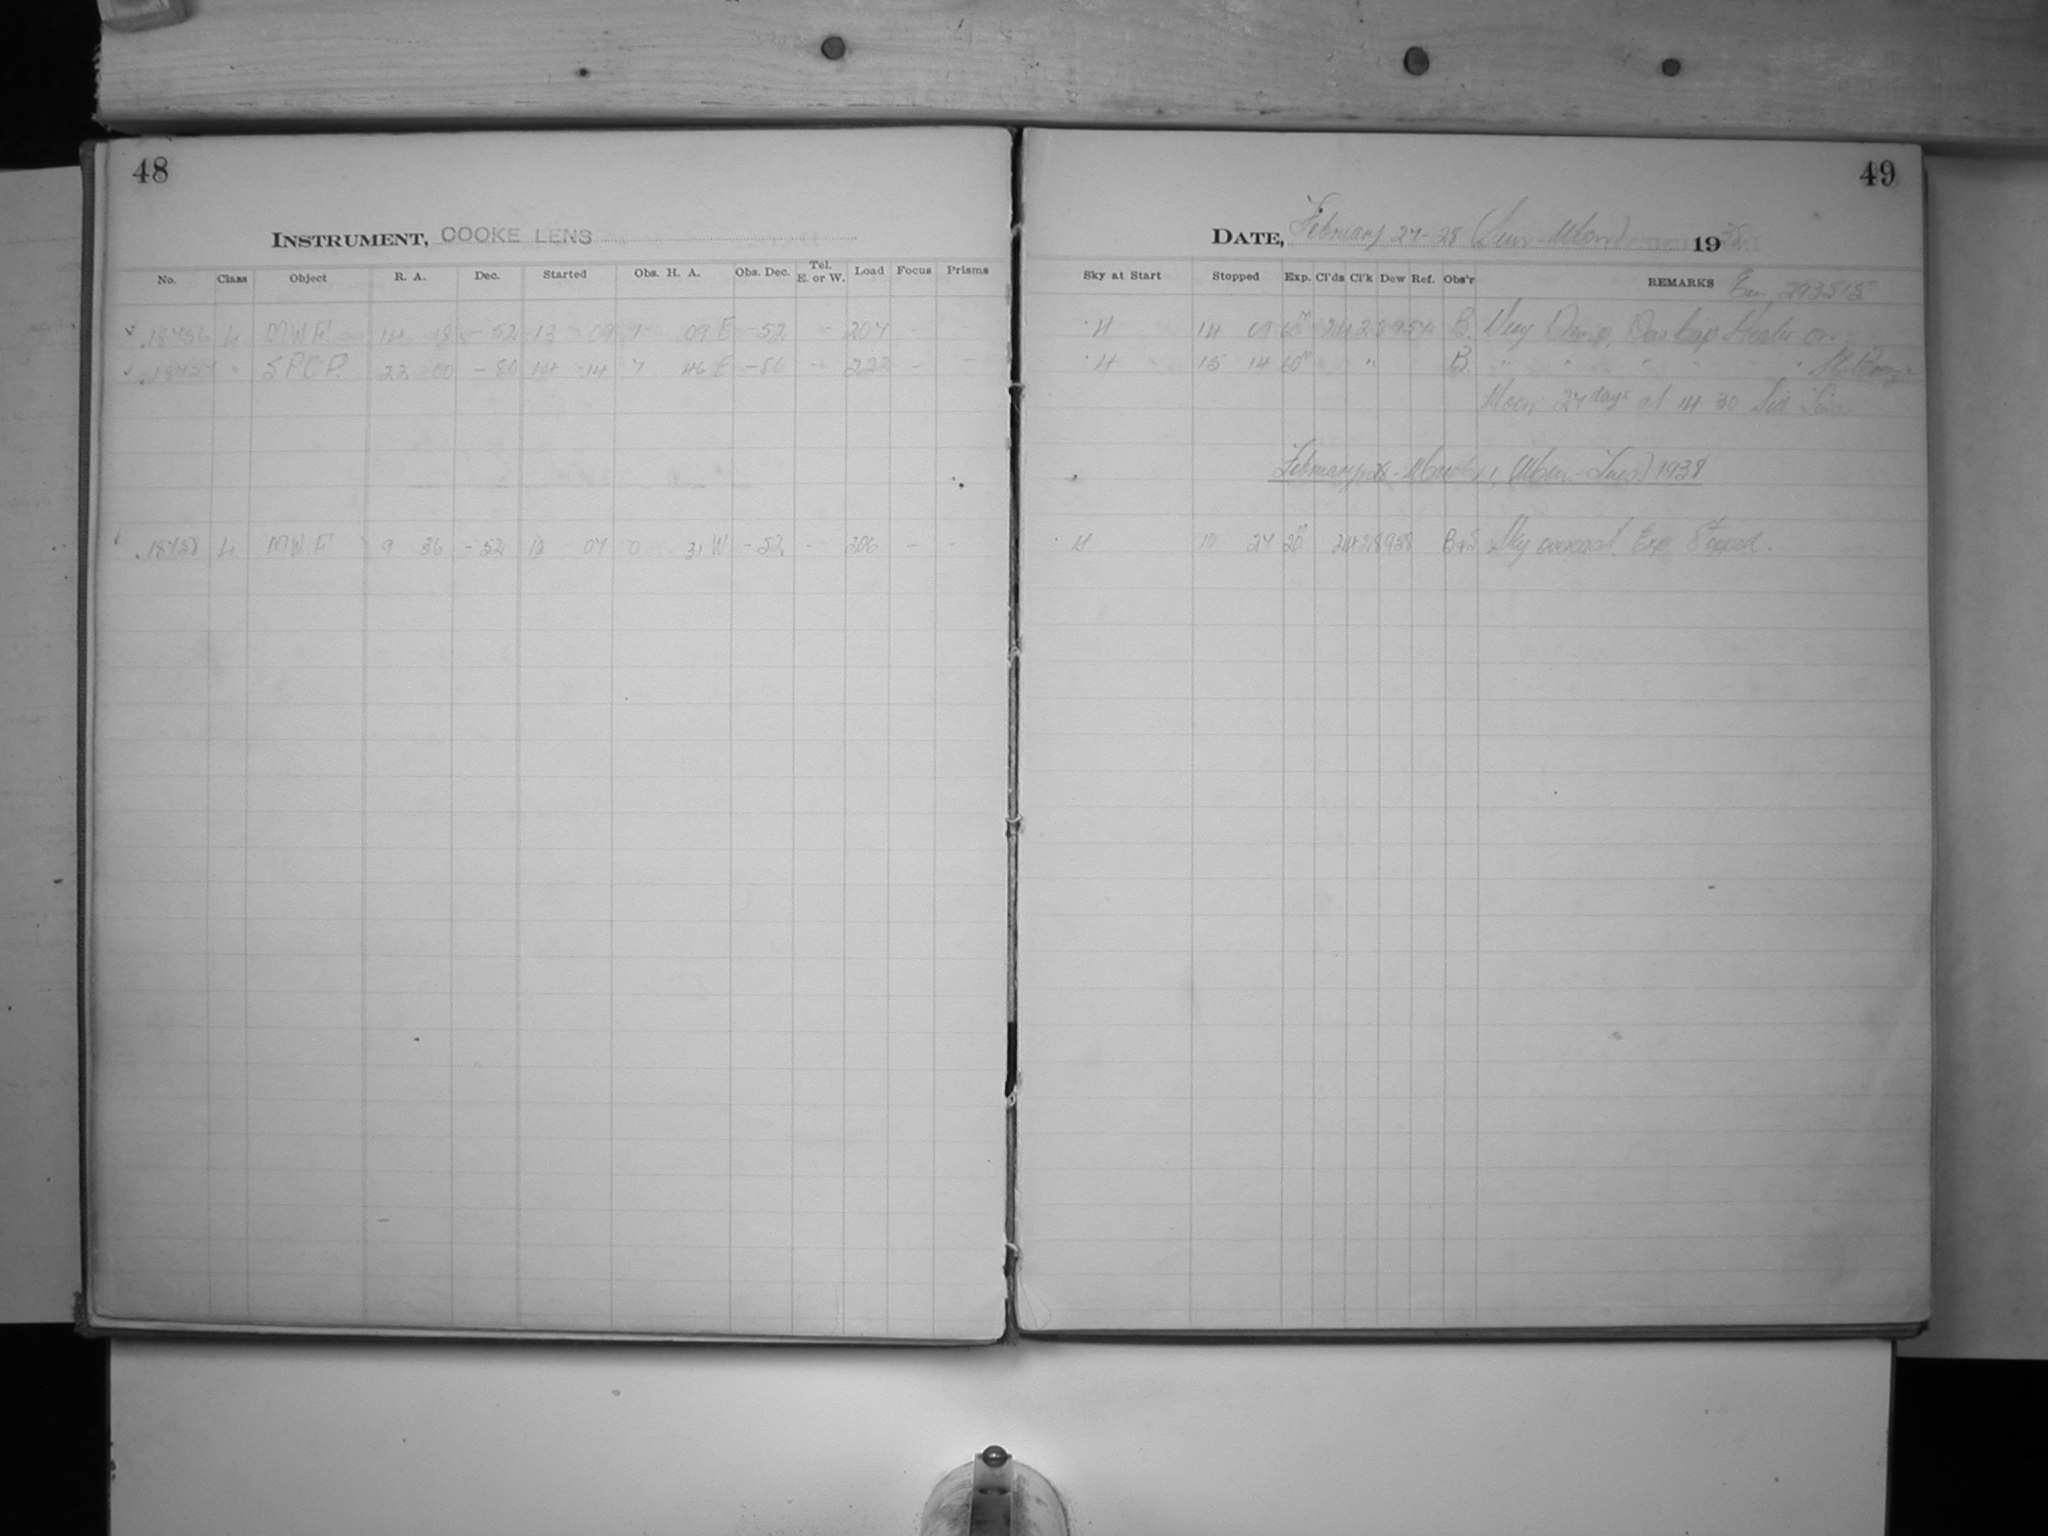 48
INSTRUMENT, COOKE LENS
No. Class Object R. A. Dec. Started Obs. H. A. Obs. Dec. Tel. E. or W. Load Focus Prisms
18756 L MWF 14 18 -52 13 09 1 09 E -52 - 207 -
18757 " SPCP. 22 00 -80 14 14 7 46 E -80 - 223 - -
18758 L MWF 9 36 -52 10 07 0 31 W -52 - 206 - -
49
DATE, February 27-28 (Sun-Mon) 1938
Sky at Start Stopped Exp. Cl'ds Cl'k Dew Ref. Obs'r REMARKS 293515
4 14 09 60m B. Very Damp, Dew Cap Heater on
4 15 14 60m " B. " " " " "
Moon 27 days at 14 30 Sid Time
February 28 - March 1, (Mon.-Tues) 1938
4 10 27 20m B+S Sky overcast. Exp. Stopped.